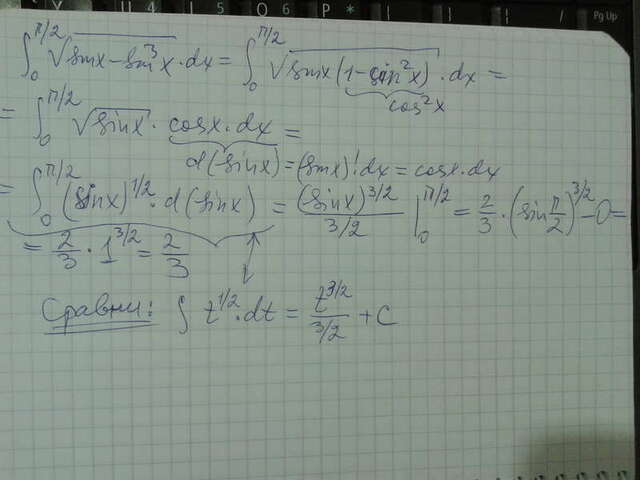 Y U 4 I 5 O 6 P * / Pg Up
∫₀^π/2 √(sinx − sin³x) · dx = ∫₀^π/2 √(sinx(1 − sin²x)) · dx =
cos²x
= ∫₀^π/2 √sinx · cosx · dx =
d(sinx) = (sinx)' · dx = cosx · dx
= ∫₀^π/2 (sinx)^1/2 · d(sinx) = (sinx)^3/2 / 3/2 |₀^π/2 = 2/3 · (sin π/2)^3/2 − 0 =
= 2/3 · 1^3/2 = 2/3
Сравни: ∫ t^1/2 · dt = t^3/2 / 3/2 + C